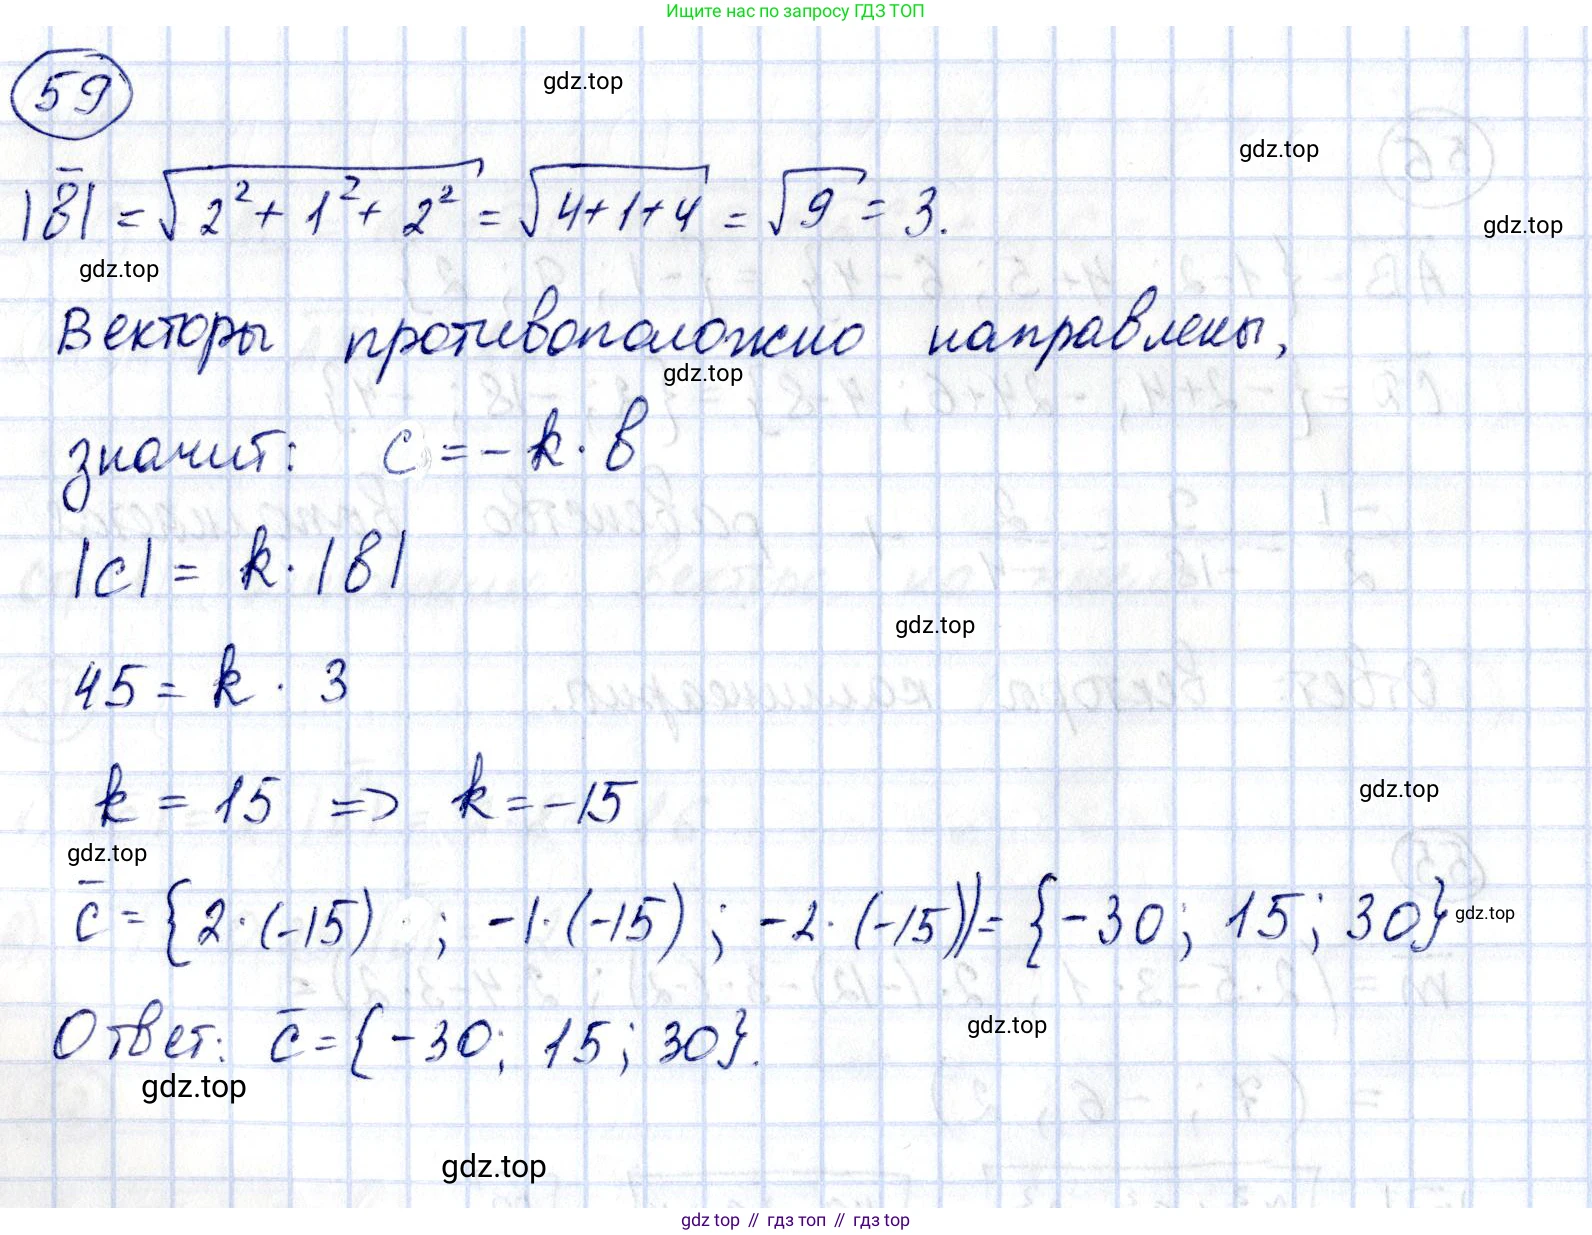 Ищите нас по запросу ГДЗ ТОП
59
gdz.top
gdz.top
|b̅| = √(2² + 1² + 2²) = √(4+1+4) = √9 = 3.
gdz.top
gdz.top
Векторы противоположно направлены,
gdz.top
значит: c = - k · b
|c| = k · |b|
gdz.top
45 = k · 3
gdz.top
k = 15 => k = -15
gdz.top
c̅ = {2·(-15) ; -1·(-15) ; -2·(-15)} = {-30; 15; 30}
gdz.top
Ответ: c̅ = {-30; 15; 30}.
gdz.top
gdz.top
gdz.top
gdz top // гдз топ // гдз top